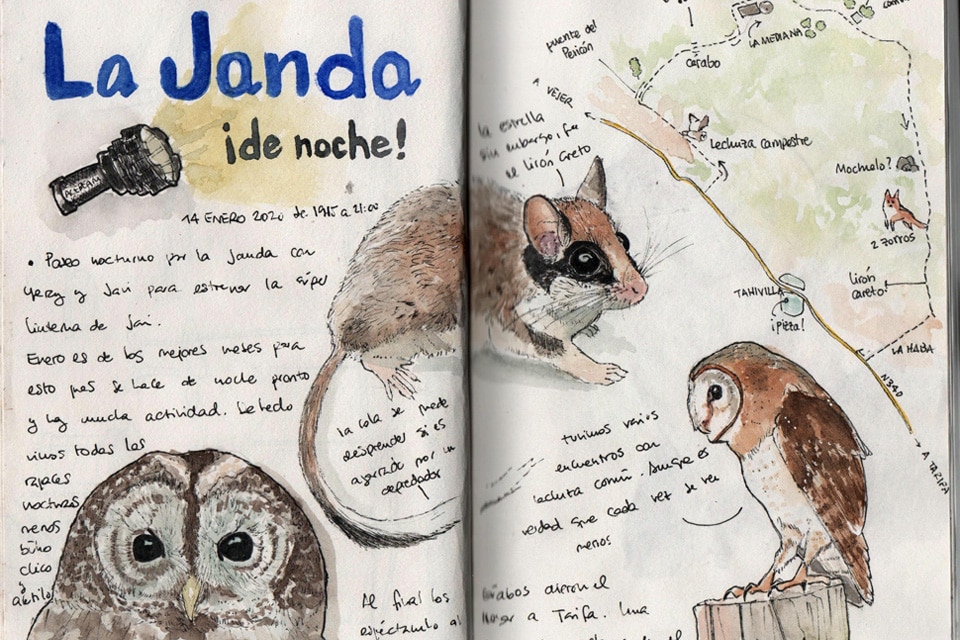 La Janda
¡de noche!
14 ENERO 2020 de 19:15 a 21:00
• Paseo nocturno por la Janda con
Yeray y Javi para estrenar la súper
linterna de Javi.
Enero es de los mejores meses para
esto pues se hace de noche pronto
y hay mucha actividad. De hecho
vimos todas las
rapaces
nocturnas
menos
búho
chico
y
autillo
la cola se puede
desprender si es
agarrado por un
depredador
Al final los
espectáculo al
la estrella
sin embargo, fue
el lirón careto
tuvimos varios
encuentros con
lechuza común. Aunque es
verdad que cada vez se ven
menos
Cárabos dieron el
llegar a Tarifa. Una
puente del
Pericón
A VEJER
cárabo
LA MEDIANA
Lechuza campestre
Mochuelo?
2 zorros
lirón
careto!
TAHIVILLA
¡pizza!
LA HABA
N340
A TARIFA